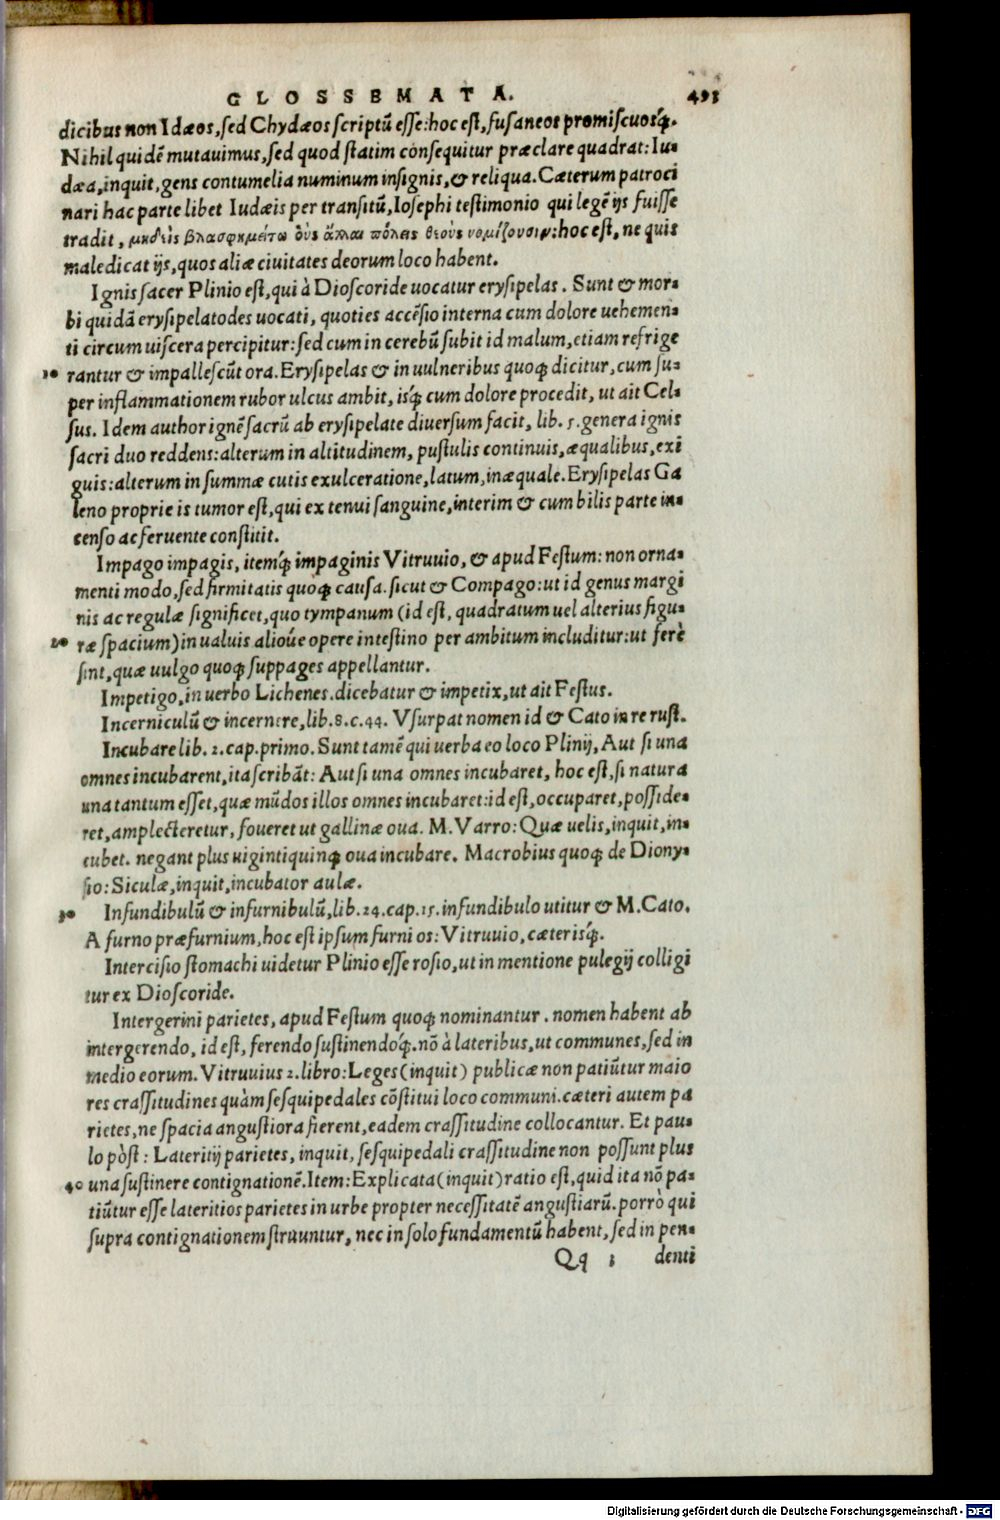 GLOSSEMATA. 493
dicibus non Idæos, sed Chydæos scriptū esse: hoc est, fusaneos promiscuosq́;.
Nihil quidē mutauimus, sed quod statim consequitur præclare quadrat: Iu-
dæa, inquit, gens contumelia numinum insignis, & reliqua. Cæterum patroci
nari hac parte libet Iudæis per transitū, Iosephi testimonio qui legē ijs fuisse
tradit, μηδεὶς βλασφημείτω οὓς ἄλλαι πόλεις θεοὺς νομίζουσιν: hoc est, ne quis
maledicat ijs, quos aliæ ciuitates deorum loco habent.
Ignis sacer Plinio est, qui à Dioscoride uocatur erysipelas. Sunt & mor-
bi quidā erysipelatodes uocati, quoties accēsio interna cum dolore uehemen-
ti circum uiscera percipitur: sed cum in cerebū subit id malum, etiam refrige
10 rantur & impallescūt ora. Erysipelas & in uulneribus quoq; dicitur, cum su-
per inflammationem rubor ulcus ambit, isq́; cum dolore procedit, ut ait Cel-
sus. Idem author ignē sacrū ab erysipelate diuersum facit, lib. 5. genera ignis
sacri duo reddens: alterum in altitudinem, pustulis continuis, æqualibus, exi
guis: alterum in summæ cutis exulceratione, latum, inæquale. Erysipelas Ga
leno proprie is tumor est, qui ex tenui sanguine, interim & cum bilis parte in-
censo ac feruente constitit.
Impago impagis, itemq́; impaginis Vitruuio, & apud Festum: non orna-
menti modo, sed firmitatis quoq; causa. sicut & Compago: ut id genus margi
nis ac regulæ significet, quo tympanum (id est, quadratum uel alterius figu-
20 ræ spacium) in ualuis alioúe opere intestino per ambitum includitur: ut ferè
sint, quæ uulgo quoq; suppages appellantur.
Impetigo, in uerbo Lichenes. dicebatur & impetix, ut ait Festus.
Incerniculū & incernere, lib. 8. c. 44. Vsurpat nomen id & Cato in re rust.
Incubare lib. 2. cap. primo. Sunt tamē qui uerba eo loco Plinij, Aut si una
omnes incubarent, ita scribāt: Aut si una omnes incubaret, hoc est, si natura
una tantum esset, quæ mūdos illos omnes incubaret: id est, occuparet, posside-
ret, amplecteretur, foueret ut gallinæ oua. M. Varro: Quæ uelis, inquit, in-
cubet. negant plus uigintiquinq; oua incubare. Macrobius quoq; de Diony-
sio: Siculæ, inquit, incubator aulæ.
30 Infundibulū & infurnibulū, lib. 24. cap. 15. infundibulo utitur & M. Cato.
A furno præfurnium, hoc est ipsum furni os: Vitruuio, cæterisq́;.
Intercisio stomachi uidetur Plinio esse rosio, ut in mentione pulegij colligi
tur ex Dioscoride.
Intergerini parietes, apud Festum quoq; nominantur. nomen habent ab
intergerendo, id est, ferendo sustinendoq́;. nō à lateribus, ut communes, sed in
medio eorum. Vitruuius 2. libro: Leges (inquit) publicæ non patiūtur maio
res crassitudines quàm sesquipedales cōstitui loco communi. cæteri autem pa
rietes, ne spacia angustiora fierent, eadem crassitudine collocantur. Et pau-
lo pòst: Lateritij parietes, inquit, sesquipedali crassitudine non possunt plus
40 una sustinere contignationē. Item: Explicata (inquit) ratio est, quid ita nō pa-
tiūtur esse lateritios parietes in urbe propter necessitatē angustiarū. porrò qui
supra contignationem struuntur, nec in solo fundamentū habent, sed in pen-
Qq 3 denti
Digitalisierung gefördert durch die Deutsche Forschungsgemeinschaft - DFG